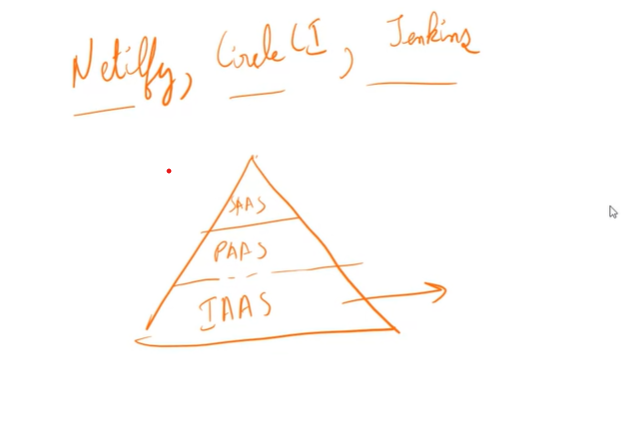 Netilfy, Circle CI, Jenkins
SAAS
PAAS
IAAS